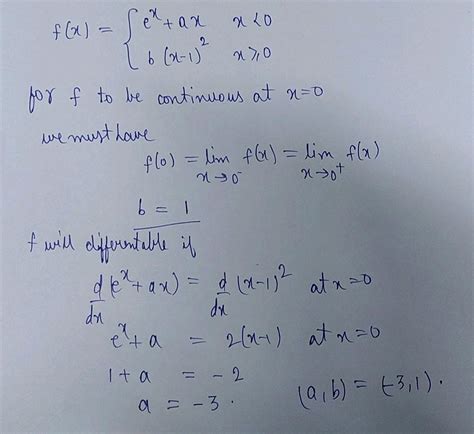 f(x) = { e^x + ax   x < 0
b (x-1)^2   x ≥ 0
for f to be continuous at x=0
we must have
f(0) = lim f(x) = lim f(x)
x→0^-   x→0^+
b = 1
f will differentable if
d/dx (e^x + ax) = d/dx (x-1)^2 at x=0
e^x + a = 2(x-1) at x=0
1 + a = -2
a = -3 .   (a,b) = (-3,1).